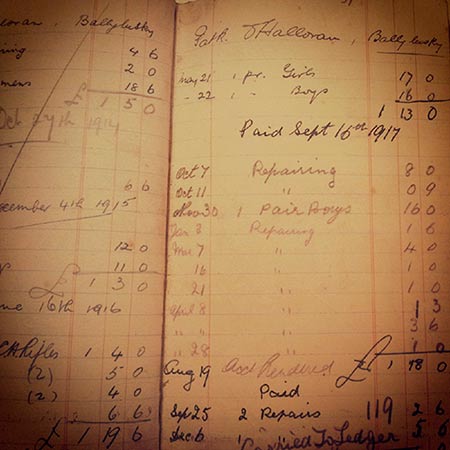 Ballylusky
4 6
2 0
18 6
£ 1 5 0
Oct 27th 1914
6 6
December 4th 1915
12 0
11 0
£ 1 3 0
June 16th 1916
1 4 0
(2) 5 0
(2) 4 0
6 6
£ 1 19 6
Path. O'Halloran, Ballylusky
May 21 1 pr. Girls 17 0
" 22 1 " Boys 16 0
1 13 0
Paid Sept 15th 1917
Oct 7 Repairing 8 0
Oct 11 " 0 9
Nov 30 1 Pair Boys 16 0
Jan 3 Repairing 1 6
Mar 7 " 4 0
16 " 1 0
21 " 1 0
April 8 " 1 3
" " " 3 6
" 28 " 1 0
Aug 19 Acct Rendered £ 1 18 0
Paid
Sept 25 2 Repairs 119 2 6
Dec 6 5 6
Carried To Ledger